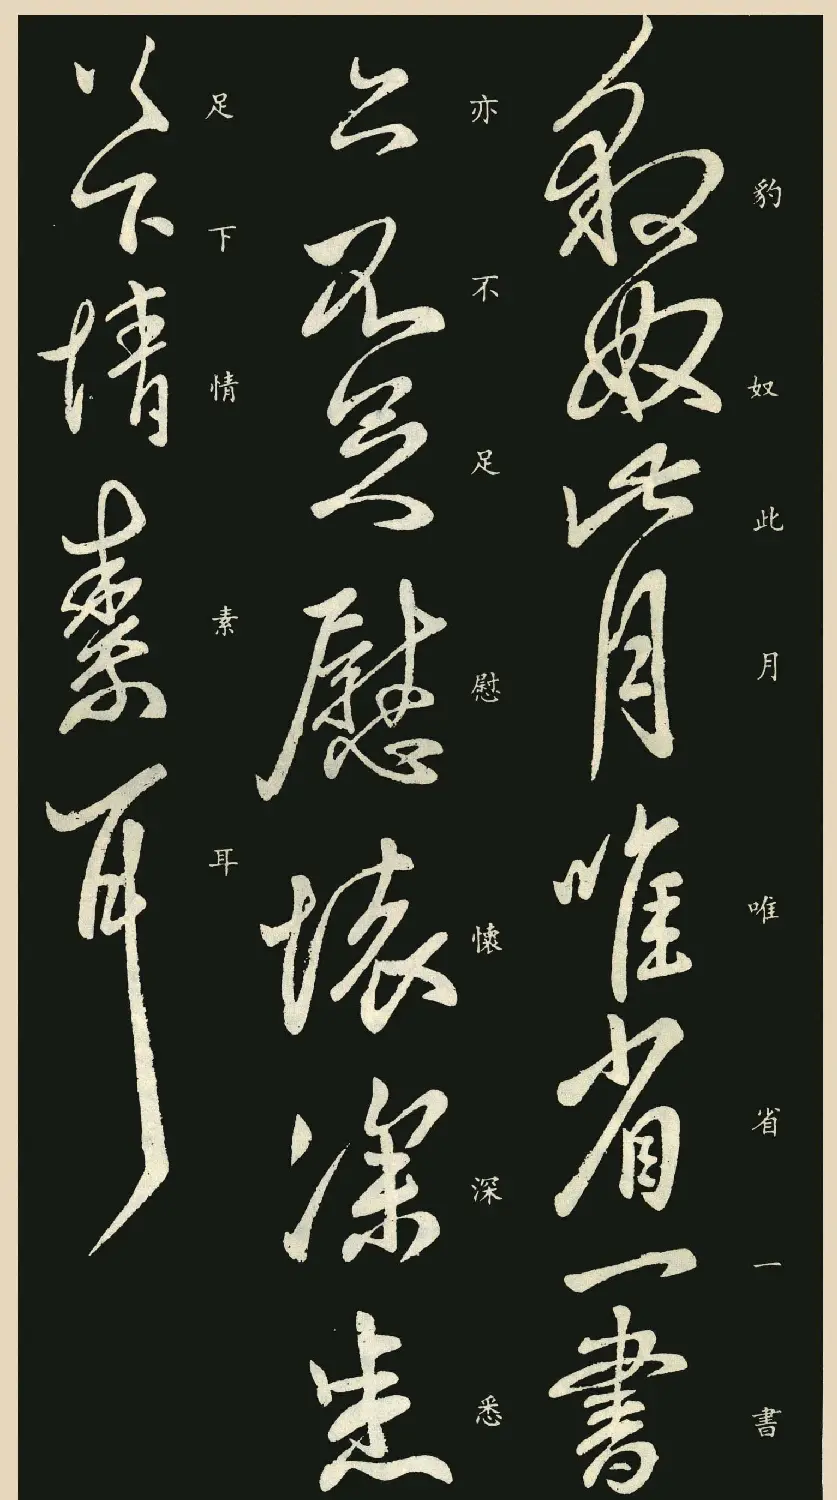 豹奴此月唯省一書
亦不足慰懷深悉
足下情素耳